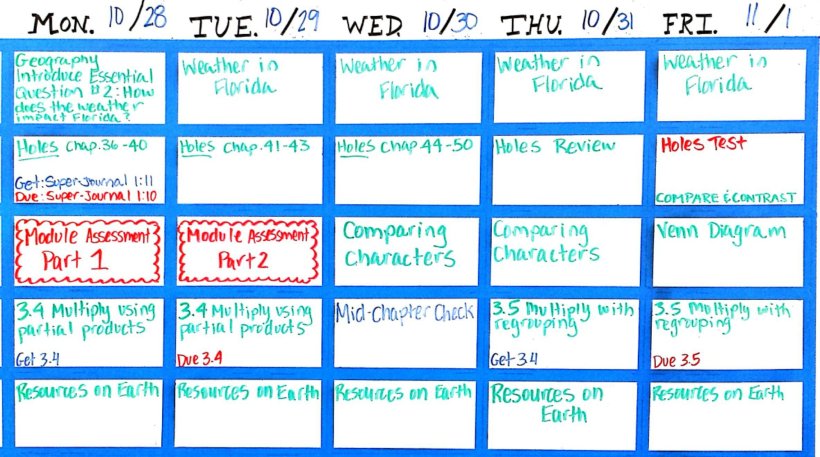 MON. 10/28 TUE. 10/29 WED. 10/30 THU. 10/31 FRI. 11/1
Geography
Introduce Essential
Question #2: How
does the weather
impact Florida?
Weather in
Florida
Weather in
Florida
Weather in
Florida
Weather in
Florida
Holes Chap. 36-40
Get: Super-Journal 1:11
Due: Super-Journal 1:10
Holes Chap. 41-43
Holes Chap 44-50
Holes Review
Holes Test
COMPARE & CONTRAST
Module Assessment
Part 1
Module Assessment
Part 2
Comparing
Characters
Comparing
Characters
Venn Diagram
3.4 Multiply using
partial products
Get 3.4
3.4 Multiply using
partial products
Due 3.4
Mid-Chapter Check
3.5 Multiply with
regrouping
Get 3.4
3.5 Multiply with
regrouping
Due 3.5
Resources on Earth
Resources on Earth
Resources on Earth
Resources on
Earth
Resources on Earth